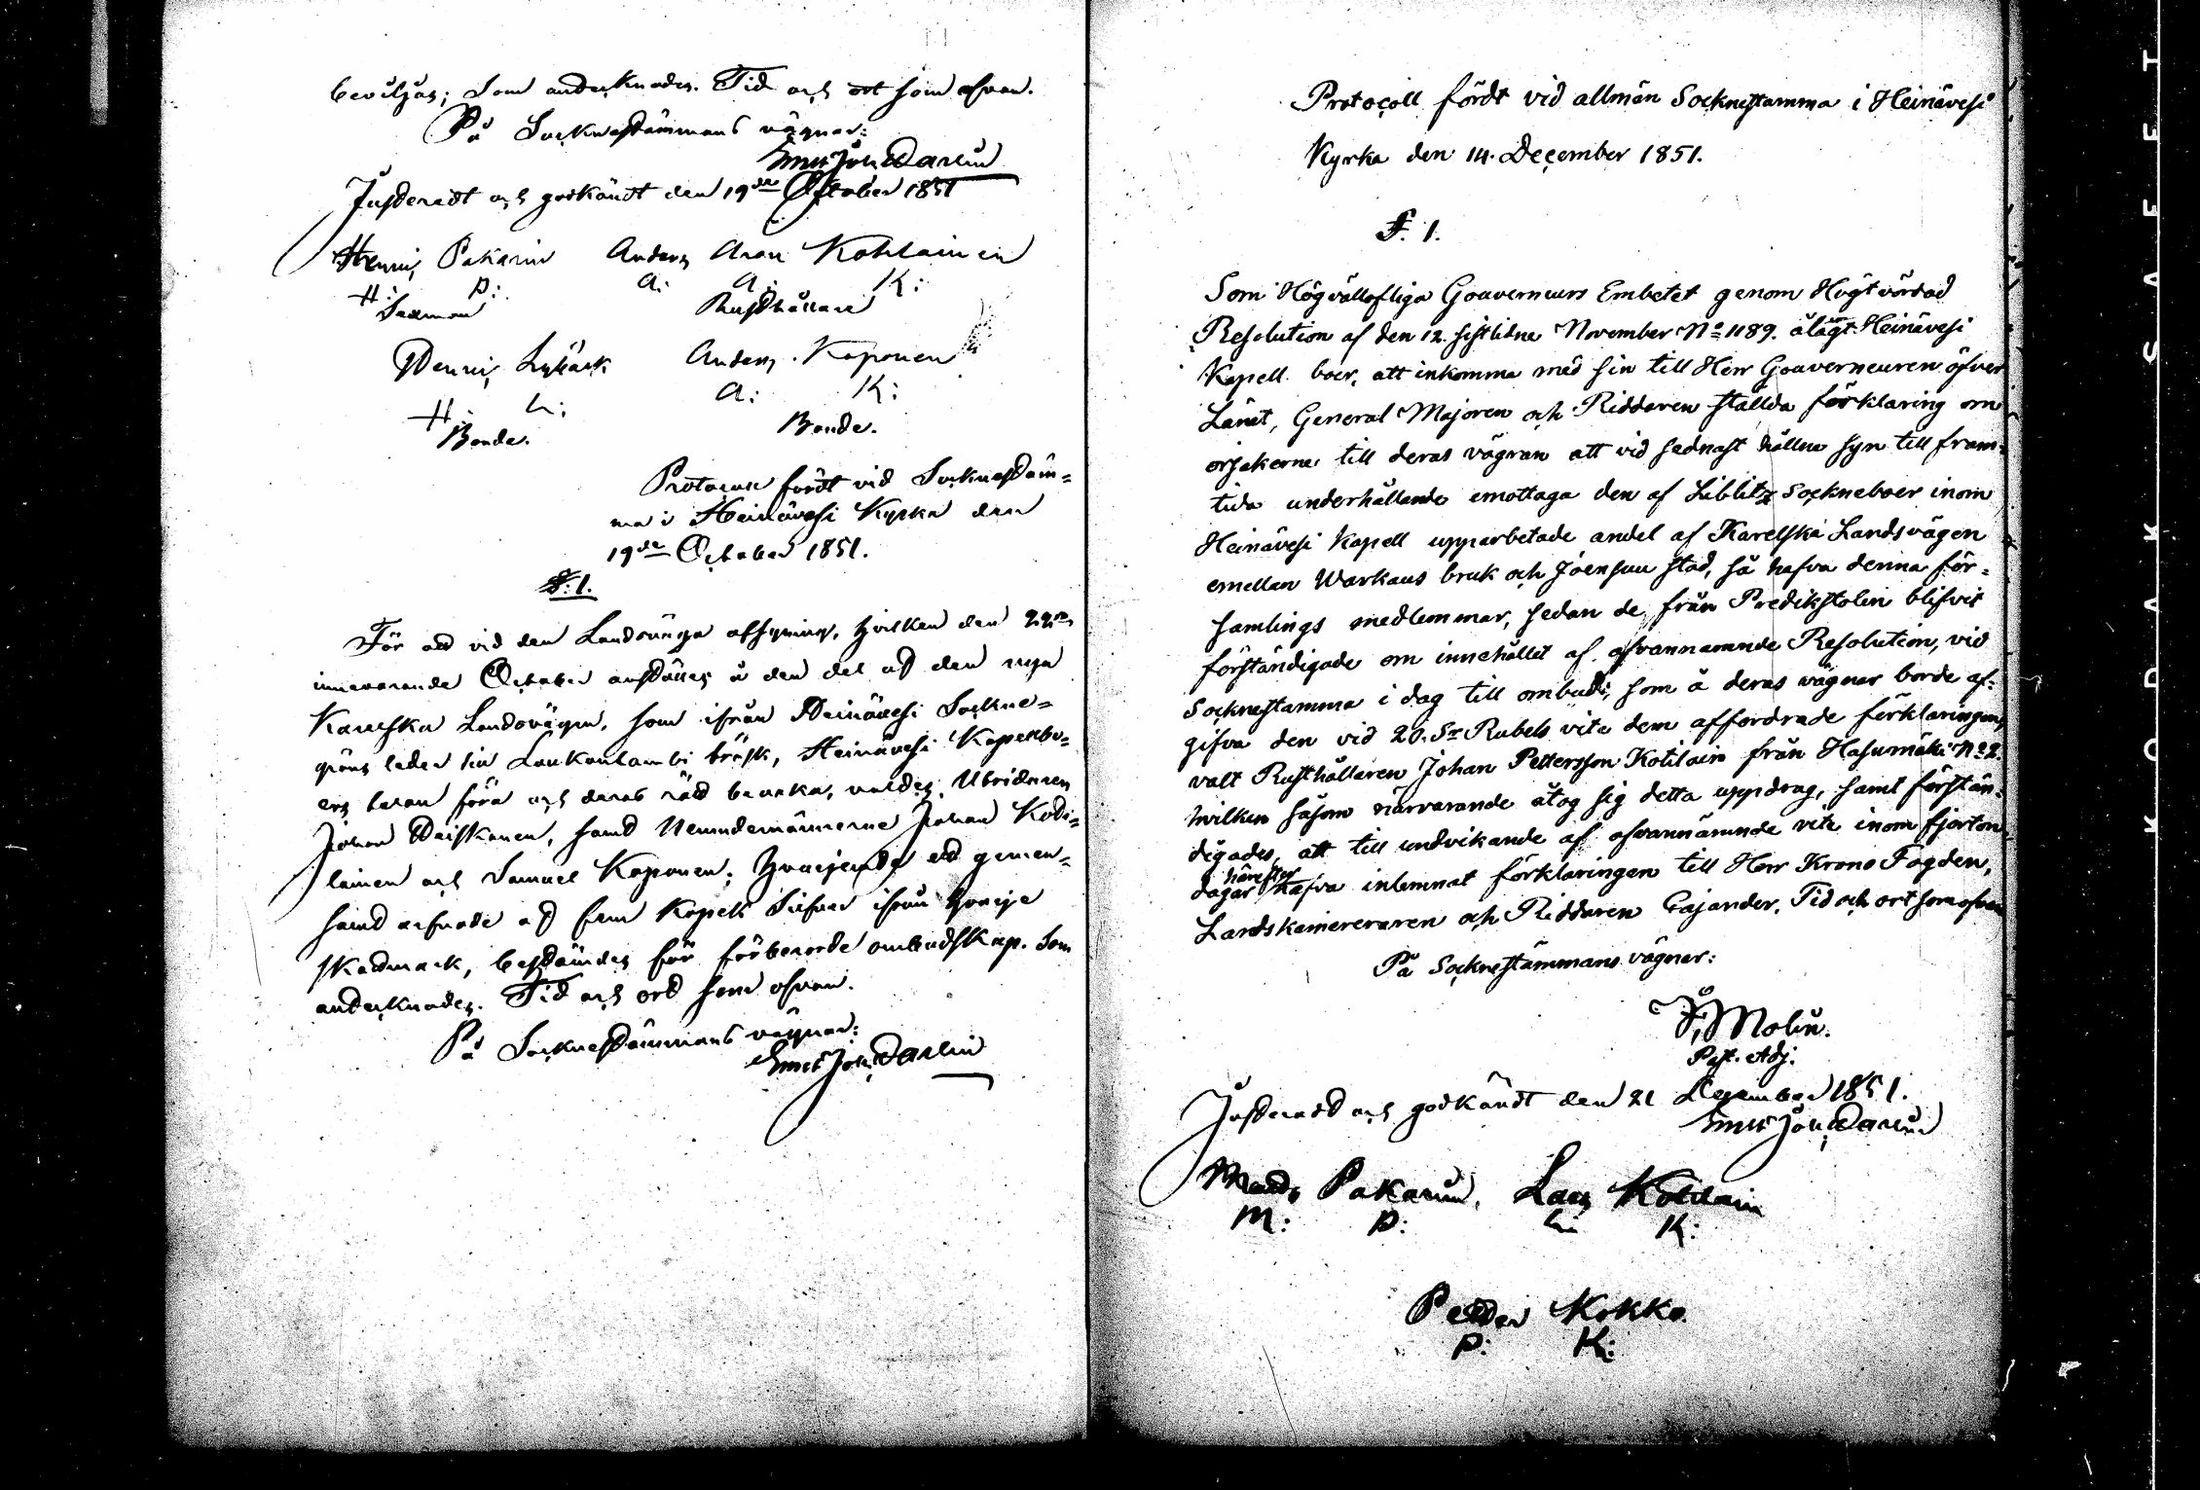 beviljas; Som antecknades. Tid och ort som ofvan.
På Socknestämmans vägnar:
Justeradt och godkändt den 19de October 1851
Henric Pakarin Anders Aron Kotilainen
H: P: A: A: K:
Sexman Rusthållare
Henric Anders Kaponen
H: L: A: K:
Bonde. Bonde.
Protocoll fördt vid Socknestäm=
ma i Heinävesi Kyrka den
19de October 1851.
§. 1.
För att vid den Landsvägs afsyning, hvilken den 22
innevarande October anställes å den del af den nya
Karelska Landsvägen, som ifrån Heinävesi Sockne=
gräns leder till träsk, Heinävesi Kapellbo=
ers talan föra och deras rätt bevaka, valdes
Johan samt Nemndemännerne Johan Koti=
lainen och Samuel Kaponen; hvarjemte ett gemen=
samt arfvode af fem Kopek Silfver ifrån hvarje
skattmark, bestämdes för förberörde ombudskap. Som
antecknades. Tid och ort som ofvan.
På Socknestämmans vägnar:
Protocoll fördt vid allmän Socknestämma i Heinävesi
Kyrka den 14. December 1851.
§. 1.
Som Högvällofliga Gouverneurs Embetet genom Högtvördad
Resolution af den 12. sistlidne November No 1189. ålagt Heinävesi
Kapell boer, att inkomma med sin till Herr Gouverneuren öfver
Länet, General Majoren och Riddaren ställda förklaring om
orsakerne till deras vägran att vid sednast hållne syn till fram=
tida underhållande emottaga den af Liblitz Sockneboer inom
Heinävesi Kapell upparbetade andel af Karelska Landsvägen
emellan Warkaus bruk och Joensuu stad, så hafva denna för=
samlings medlemmar, sedan de från Predikstolen blifvit
förständigade om innehållet af ofvannämnde Resolution, vid
Socknestämma i dag till ombud, som å deras vägnar borde af=
gifva den vid 20. Sr Rubels vite dem affordrade förklaringen,
valt Rusthållaren Johan Pettersson Kotilain från Hasumäki No 2.
hvilken såsom närvarande åtog sig detta uppdrag, samt förstän=
digades, att till undvikande af ofvannämnde vite inom fjorton
dagar härefter hafva inlemnat förklaringen till Herr Krono Fogden,
Landskamereraren och Riddaren Cajander. Tid och ort som ofvan
På Socknestämmans vägnar:
J. Molin.
Past. Adj.
Justeradt och godkändt den 21 December 1851.
Mats Pakarin, Lars Kotilain
M: P: L: K:
Petter Kokko.
P: K: